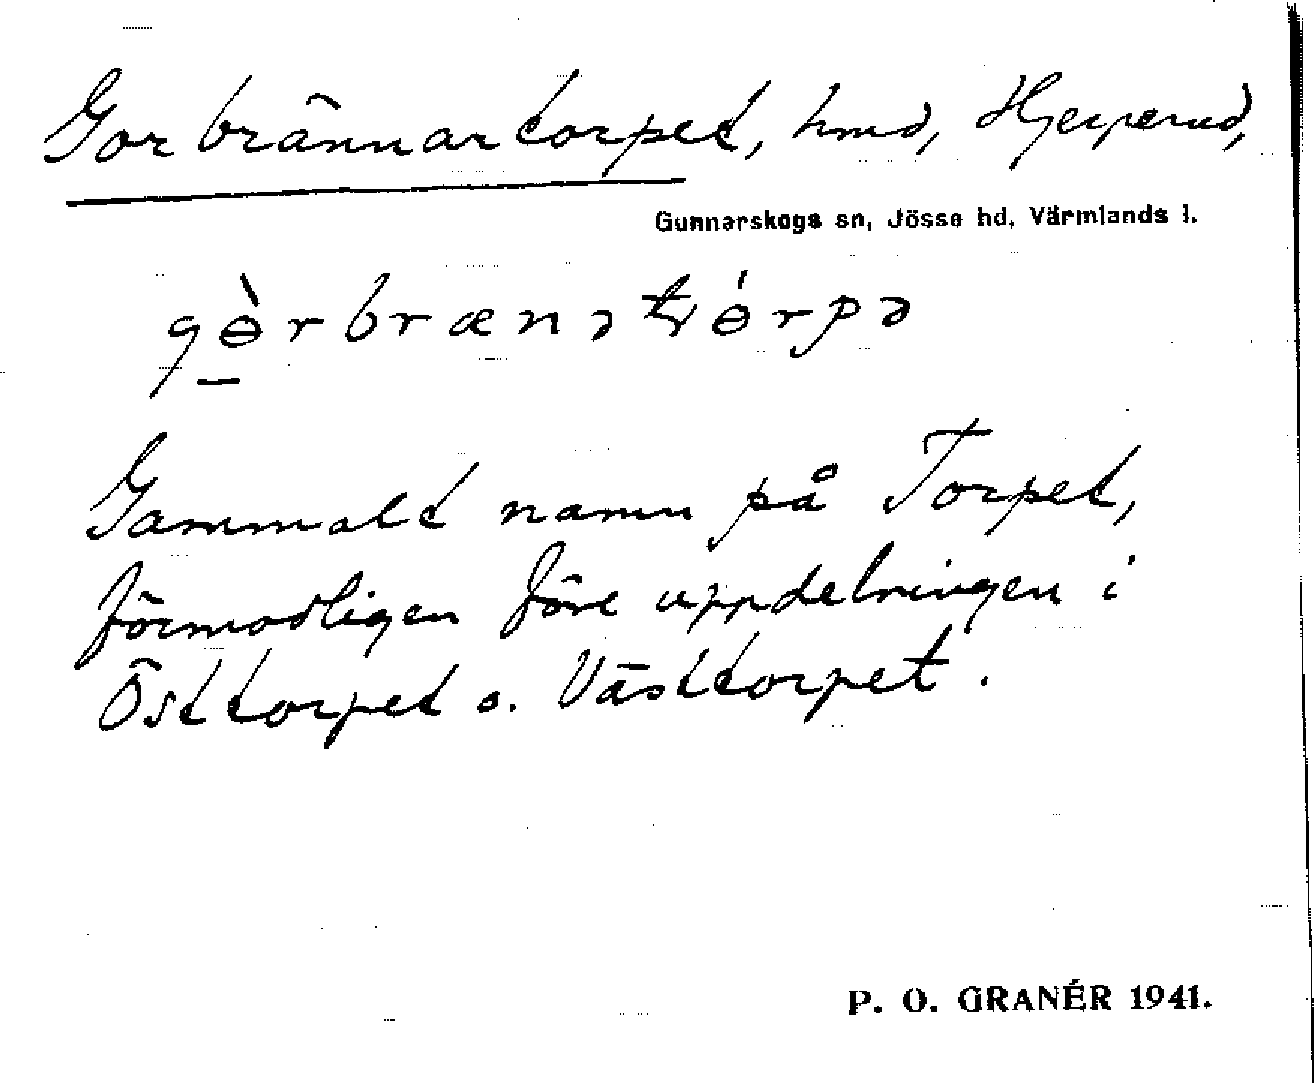 Gorbrännartorpet, hmd, Hjerperud,
Gunnarskogs sn, Jösse hd, Värmlands l.
Gammalt namn på Torpet,
förmodligen före uppdelningen i
Östtorpet o. Västtorpet.
P. O. GRANÉR 1941.